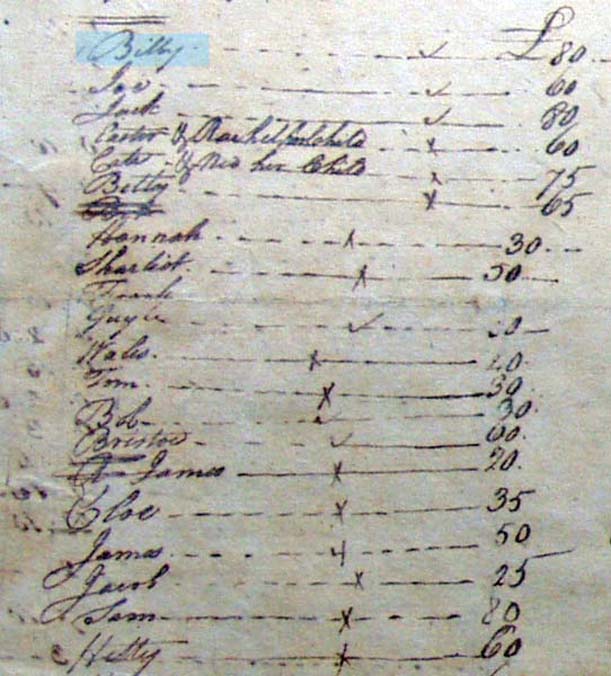 Billy £ 80
Joe 60
Jack 80
Easter & Rachel her Child 60
Cate & Ned her Child 75
Betty 65
Hannah 30
Sharlot 50
Frank
Guy 
Wales 40
Tom 30
Bob 30
Bristoe 60
James 20
Cloe 35
James 50
Jacob 25
Sam 80
Hetty 60